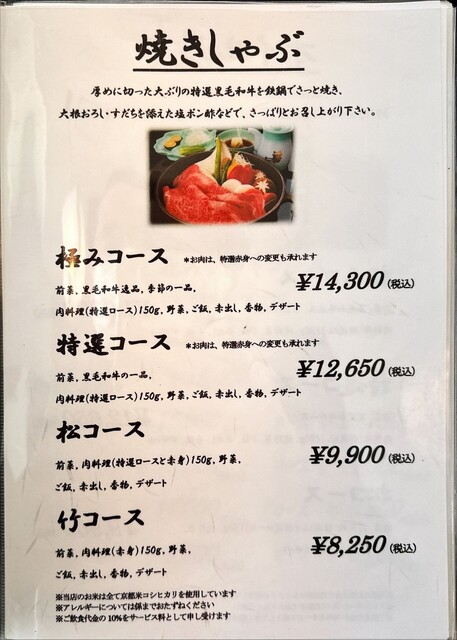 焼きしゃぶ
厚めに切った大ぶりの特選黒毛和牛を鉄鍋でさっと焼き、
大根おろし・すだちを添えた塩ポン酢などで、さっぱりとお召し上がり下さい。
極みコース ＊お肉は、特選赤身への変更も承れます
¥14,300(税込)
前菜、黒毛和牛逸品、季節の一品、
肉料理(特選ロース)150g、野菜、ご飯、赤出し、香物、デザート
特選コース ＊お肉は、特選赤身への変更も承れます
¥12,650(税込)
前菜、黒毛和牛の一品、
肉料理(特選ロース)150g、野菜、ご飯、赤出し、香物、デザート
松コース
¥9,900(税込)
前菜、肉料理(特選ロースと赤身)150g、野菜、
ご飯、赤出し、香物、デザート
竹コース
¥8,250(税込)
前菜、肉料理(赤身)150g、野菜、
ご飯、赤出し、香物、デザート
※当店のお米は全て京都米コシヒカリを使用しています
※アレルギーについては係までおたずねください
※ご飲食代金の10%をサービス料として申し受けます